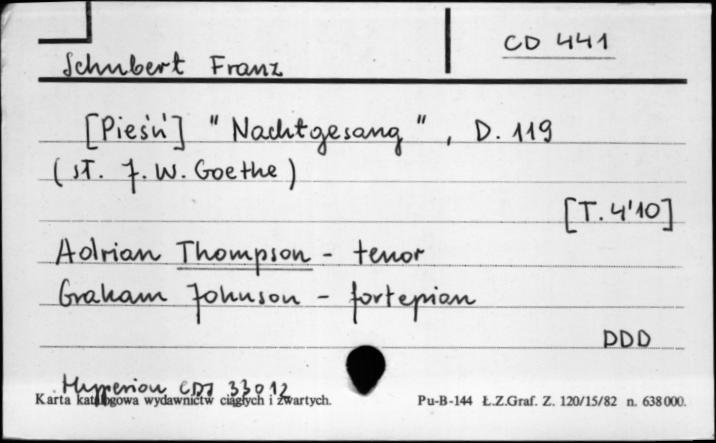 CD 441
Schubert Franz
[Pieśń] "Nachtgesang", D. 119
(sł. J. W. Goethe)
[T. 4'10]
Adrian Thompson - tenor
Graham Johnson - fortepian
DDD
Hyperion CDJ 33012
Karta katalogowa wydawnictw ciągłych i zwartych. Pu-B-144 Ł.Z.Graf. Z. 120/15/82 n. 638 000.